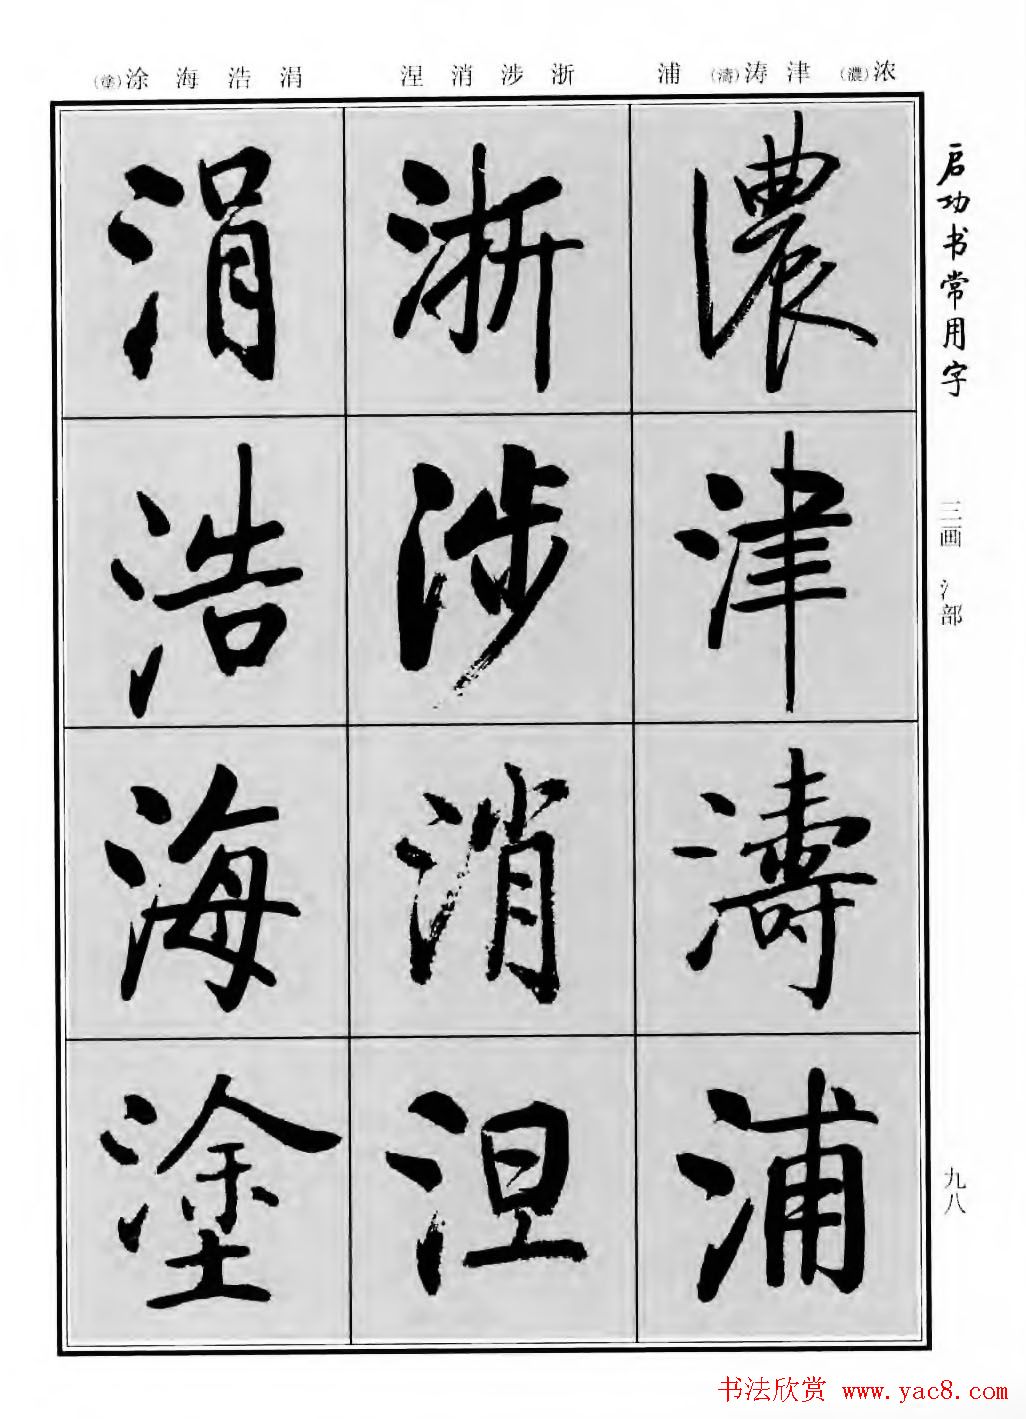 浓(濃) 津 涛(濤) 浦 浙 涉 消 涅 涓 浩 海 涂(塗)
启功书常用字
三画 氵部
九八
濃
津
濤
浦
浙
涉
消
涅
涓
浩
海
塗
书法欣赏 www.yac8.com